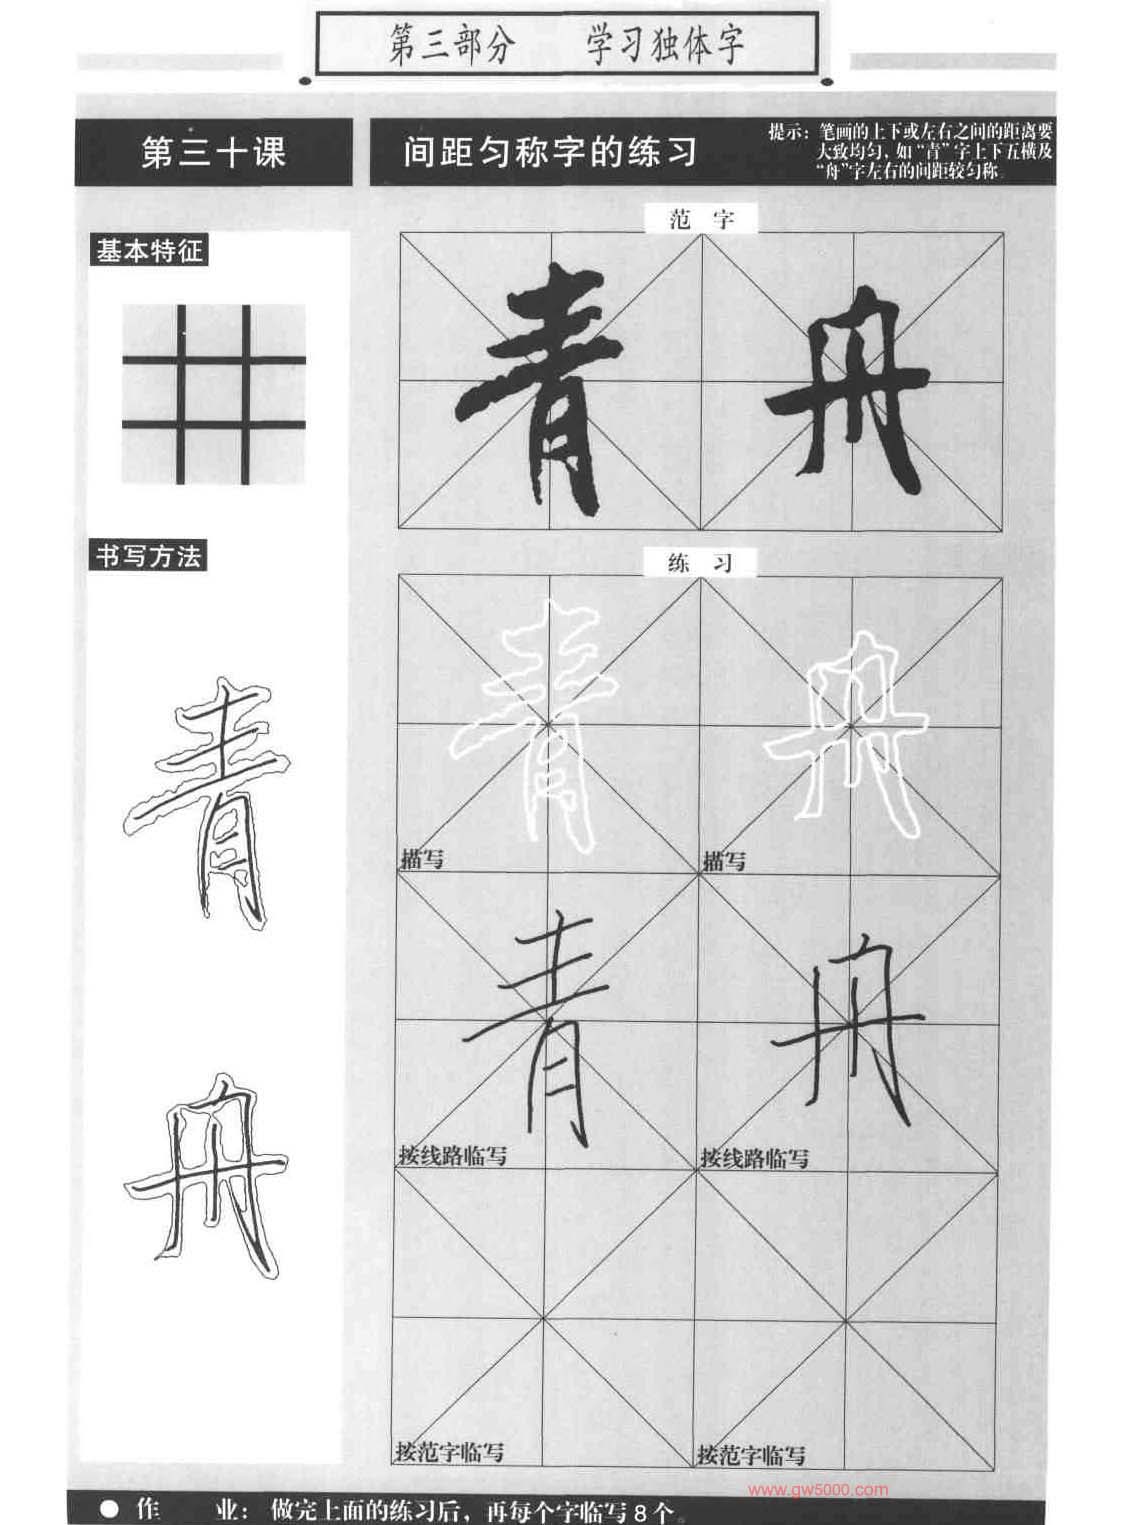 第三部分 学习独体字
第三十课
间距匀称字的练习
提示：笔画的上下或左右之间的距离要
大致均匀，如“青”字上下五横及
“舟”字左右的间距较匀称。
基本特征
书写方法
青
舟
范 字
青 舟
练 习
青 舟
描写 描写
青 舟
按线路临写 按线路临写
按范字临写 按范字临写
www.gw5000.com
● 作 业：做完上面的练习后，再每个字临写8个。